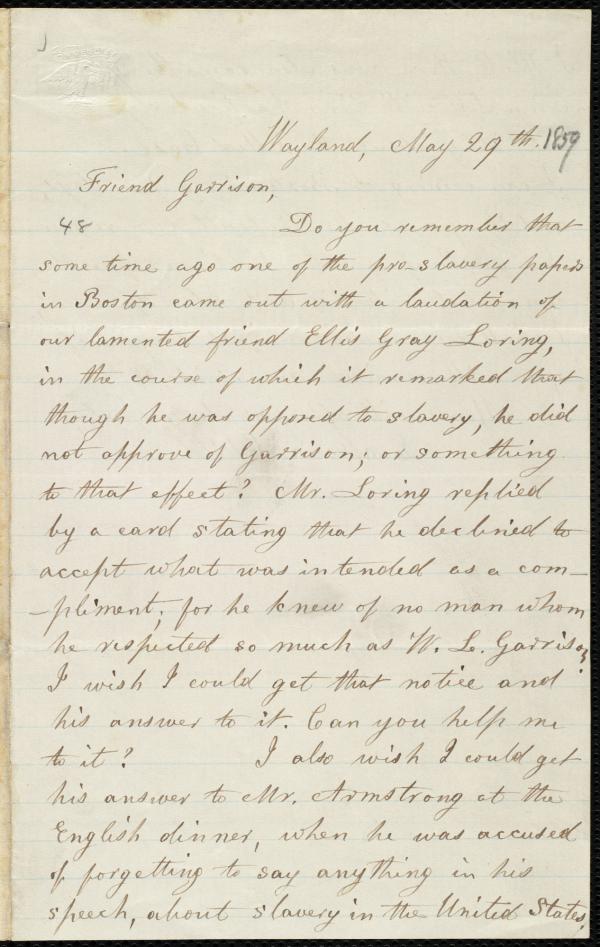 Wayland, May 29th. 1859
Friend Garrison,
48 Do you remember that
some time ago one of the pro-slavery papers
in Boston came out with a laudation of
our lamented friend Ellis Gray Loring,
in the course of which it remarked that
though he was opposed to slavery, he did
not approve of Garrison; or something
to that effect? Mr. Loring replied
by a card stating that he declined to
accept what was intended as a com-
-pliment; for he knew of no man whom
he respected so much as W. L. Garrison.
I wish I could get that notice and
his answer to it. Can you help me
to it? I also wish I could get
his answer to Mr. Armstrong at the
English dinner, when he was accused
of forgetting to say anything in his
speech, about slavery in the United States.